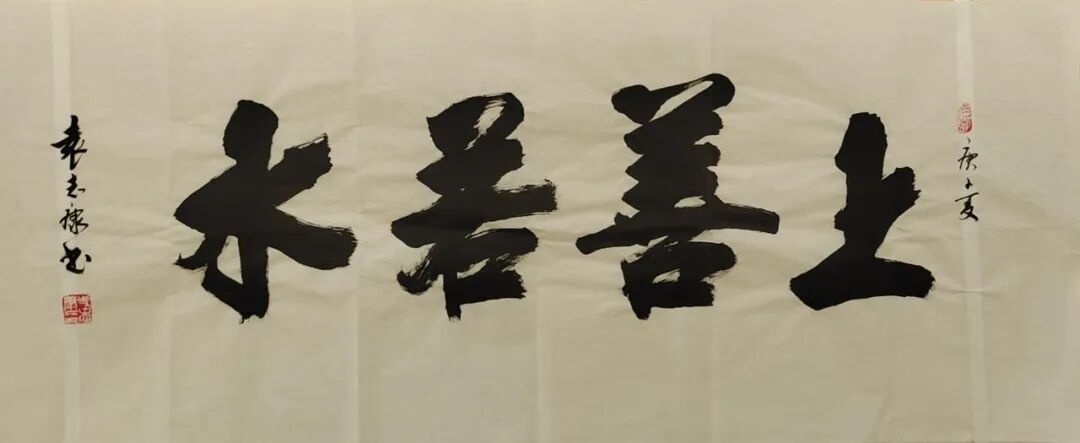 庚子夏
上善若水
袁志
书